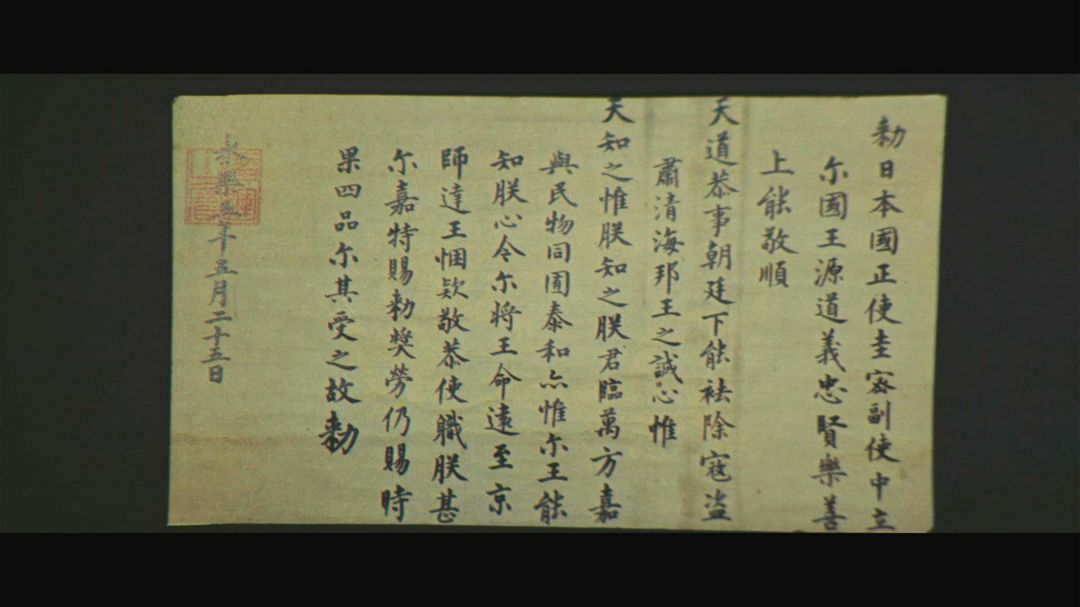 勑日本國正使圭密副使中立
尔國王源道義忠賢樂善
上能敬順
天道恭事朝廷下能袪除寇盜
肅清海邦王之誠心惟
天知之惟朕知之朕君臨萬方嘉
與民物同囿泰和亦惟尔王能
知朕心令尔将王命遠至京
師達王悃欵敬恭使職朕甚
尔嘉特賜勑獎勞仍賜時
果四品尔其受之故勑
永樂五年五月二十五日